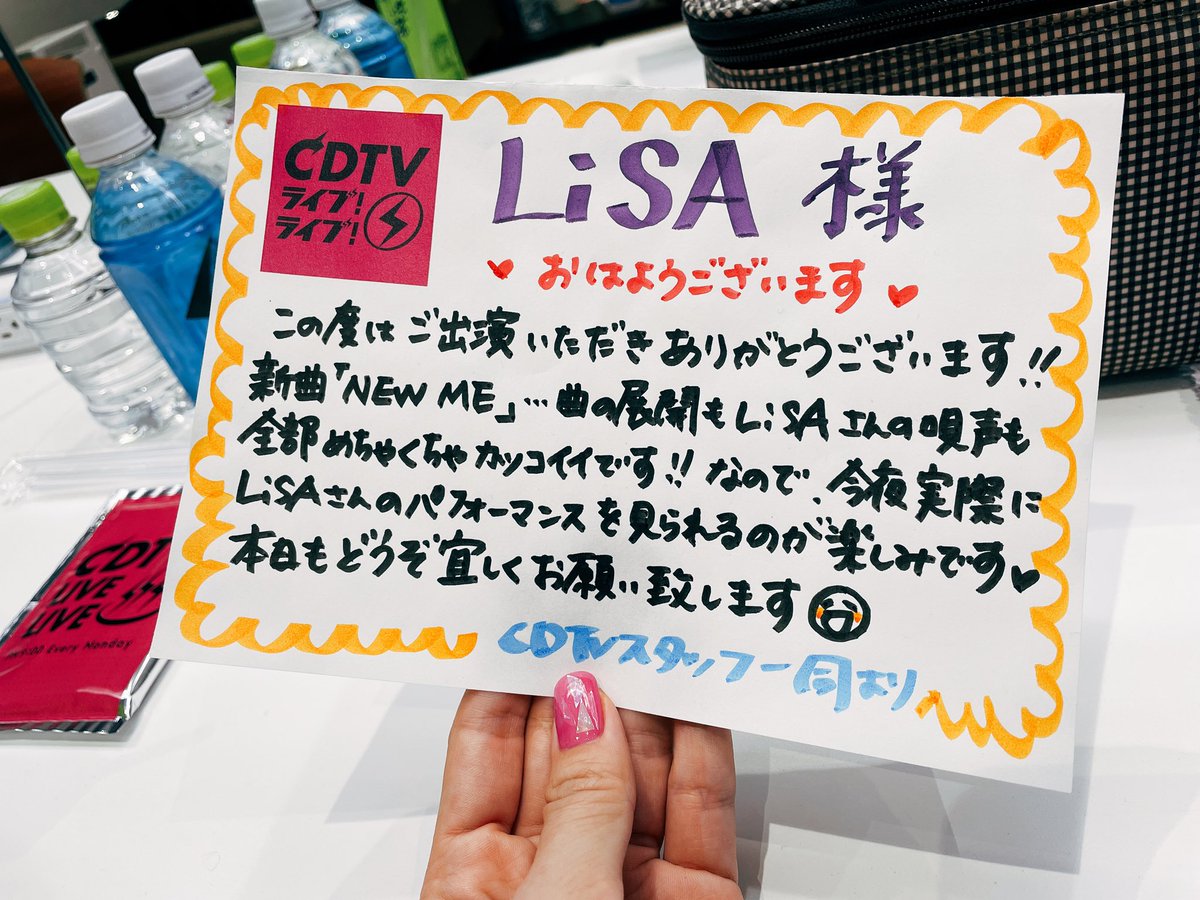 CDTV
ライブ!
ライブ!
LiSA 様
おはようございます
この度はご出演いただきありがとうございます!!
新曲「NEW ME」…曲の展開もLiSAさんの唄声も
全部めちゃくちゃカッコイイです!!なので、今夜実際に
LiSAさんのパフォーマンスを見られるのが楽しみです
本日もどうぞ宜しくお願い致します
CDTVスタッフ一同より
CDTV
LIVE
LIVE
Every Monday